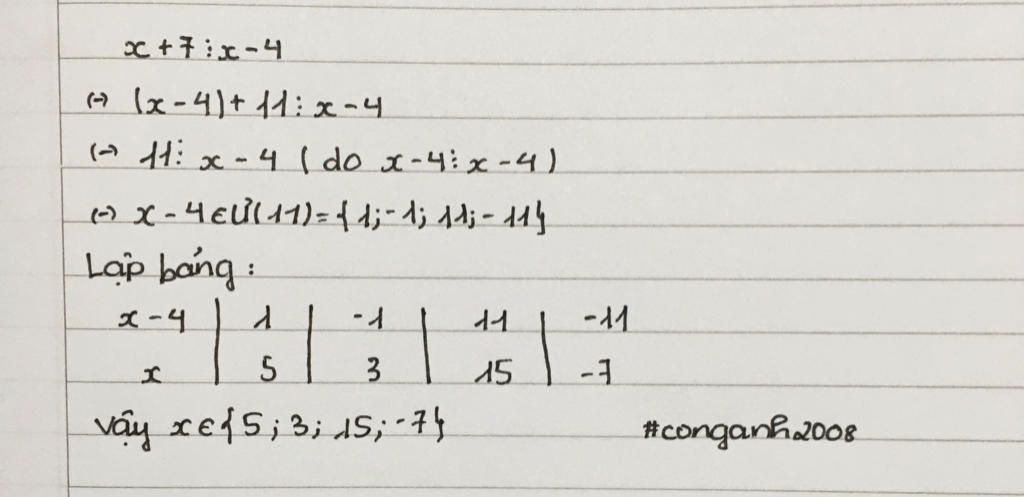 x + 7 ⋮ x - 4
(-) (x - 4) + 11 ⋮ x - 4
(-) 11 ⋮ x - 4 ( do x - 4 ⋮ x - 4 )
(-) x - 4 ∈ Ư(11) = {1; -1; 11; - 11}
Lập bảng :
x - 4 | 1 | -1 | 11 | -11
x | 5 | 3 | 15 | -7
Vậy x ∈ {5 ; 3 ; 15 ; -7}
#conganh2008